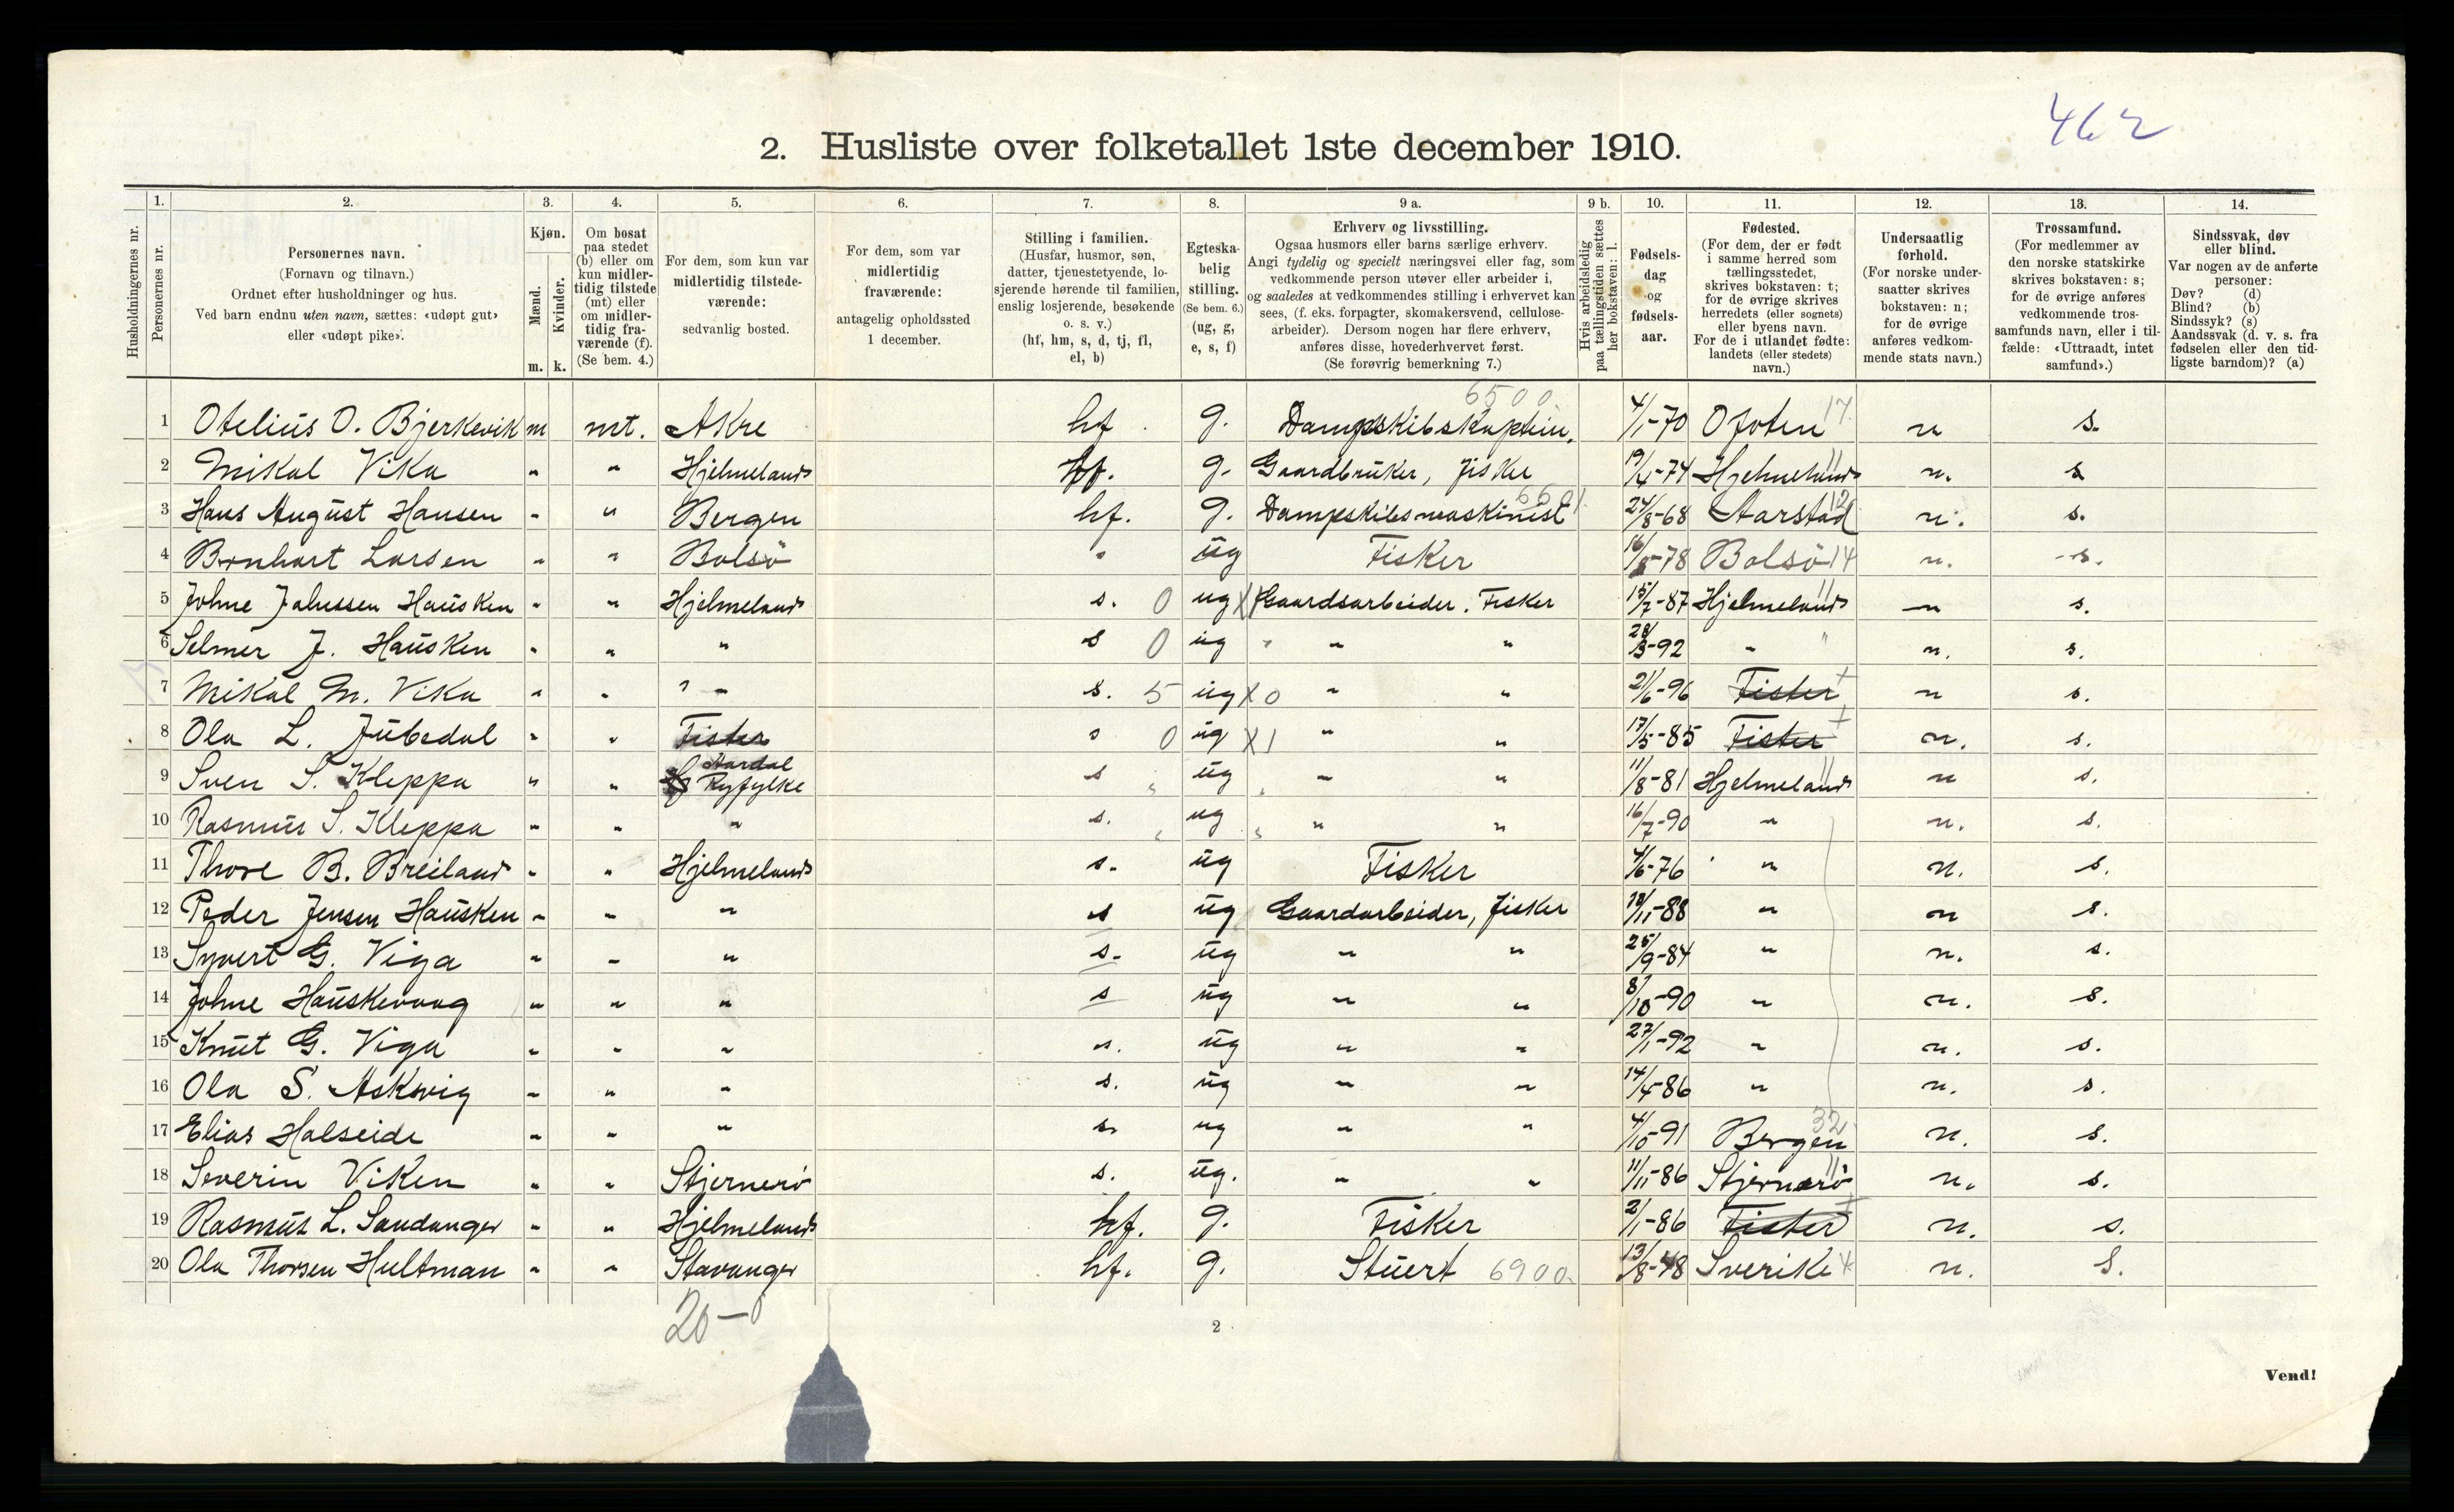 462
2. Husliste over folketallet 1ste december 1910.
Husholdningernes nr.
1. Personernes nr.
2. Personernes navn. (Fornavn og tilnavn.) Ordnet efter husholdninger og hus. Ved barn endnu uten navn, sættes: «udøpt gut» eller «udøpt pike».
3. Kjøn. Mænd. m. Kvinder. k.
4. Om bosat paa stedet (b) eller om kun midlertidig tilstede (mt) eller om midlertidig fraværende (f). (Se bem. 4.)
5. For dem, som kun var midlertidig tilstedeværende: sedvanlig bosted.
6. For dem, som var midlertidig fraværende: antagelig opholdssted 1 december.
7. Stilling i familien. (Husfar, husmor, søn, datter, tjenestetyende, losjerende hørende til familien, enslig losjerende, besøkende o. s. v.) (hf, hm, s, d, tj, fl, el, b)
8. Egteskabelig stilling. (Se bem. 6.) (ug, g, e, s, f)
9 a. Erhverv og livsstilling. Ogsaa husmors eller barns særlige erhverv. Angi tydelig og specielt næringsvei eller fag, som vedkommende person utøver eller arbeider i, og saaledes at vedkommendes stilling i erhvervet kan sees, (f. eks. forpagter, skomakersvend, cellulosearbeider). Dersom nogen har flere erhverv, anføres disse, hovederhvervet først. (Se forøvrig bemerkning 7.)
9 b. Hvis arbeidsledig paa tællingstiden sættes her bokstaven: l.
10. Fødselsdag og fødselsaar.
11. Fødested. (For dem, der er født i samme herred som tællingsstedet, skrives bokstaven: t; for de øvrige skrives herredets (eller sognets) eller byens navn. For de i utlandet fødte: landets (eller stedets) navn.)
12. Undersaatlig forhold. (For norske undersaatter skrives bokstaven: n; for de øvrige anføres vedkommende stats navn.)
13. Trossamfund. (For medlemmer av den norske statskirke skrives bokstaven: s; for de øvrige anføres vedkommende trossamfunds navn, eller i tilfælde: «Uttraadt, intet samfund».)
14. Sindssvak, døv eller blind. Var nogen av de anførte personer: Døv? (d) Blind? (b) Sindssyk? (s) Aandssvak (d. v. s. fra fødselen eller den tidligste barndom)? (a)
1 Otelius O. Bjerkevik m mt. Akre hf. g. Dampskibskaptein. 6500 4/1-70 Ofoten 17 n s.
2 Mikal Vika " " Hjelmeland hf. g. Gaardbruker, fisker 19/4-74 Hjelmeland 11 n. s
3 Hans August Hansen " " Bergen hf. g. Dampskibsmaskinist 24/8-68 Aarstad 12 n. s.
4 Bernhart Larsen " " Bolsö " ug Fisker Bolsö 14 n. s.
5 Johne Johnsen Hausken " " Hjelmeland s. 0 ug X Gaardsarbeider. Fisker 15/7-87 Hjelmeland 11 n s.
6 Selmer J. Hausken " " " s 0 ug " " 28/3-92 " " n. s.
7 Mikal M. Vika " " " s. 5 ug X 0 " " 21/6-96 Fister t n s.
8 Ola L. Jubedal " " Fister s 0 ug X 1 " " 17/5-85 Fister t n. s.
9 Sven S. Kleppa " " Aardal Ryfylke s " ug " " " 11/8-81 Hjelmeland 11 n s.
10 Rasmus S. Kleppa " " " s. " ug " " " 16/7-90 " n. s.
11 Thore B. Breiland " " Hjelmeland s. ug Fisker 4/6-76 " n. s.
12 Peder Jensen Hausken " " " s ug Gaardarbeider, fisker 18/11-88 " n s.
13 Syvert G. Viga " " " s. ug " " 25/9-84 " n. s.
14 Johne Hauskevaag " " " s ug " " 8/10-90 " n. s.
15 Knut G. Viga " " " s. ug " " 27/1-92 " n. s.
16 Ola S. Askvig " " " s. ug " " 14/4-86 " n. s.
17 Elias Halseide " " " s. ug " " 4/10-91 Bergen 32 n. s.
18 Severin Viken " " Stjernerö s. ug. " " 11/11-86 Stjernerö 11 n. s.
19 Rasmus L. Sandanger " " Hjelmeland hf. g. Fisker 2/1-86 Fister t n. s.
20 Ola Thorsen Hultman " " Stavanger hf. g. Stuert 6900 13/8-48 Sverike n. s.
20-0
2
Vend!